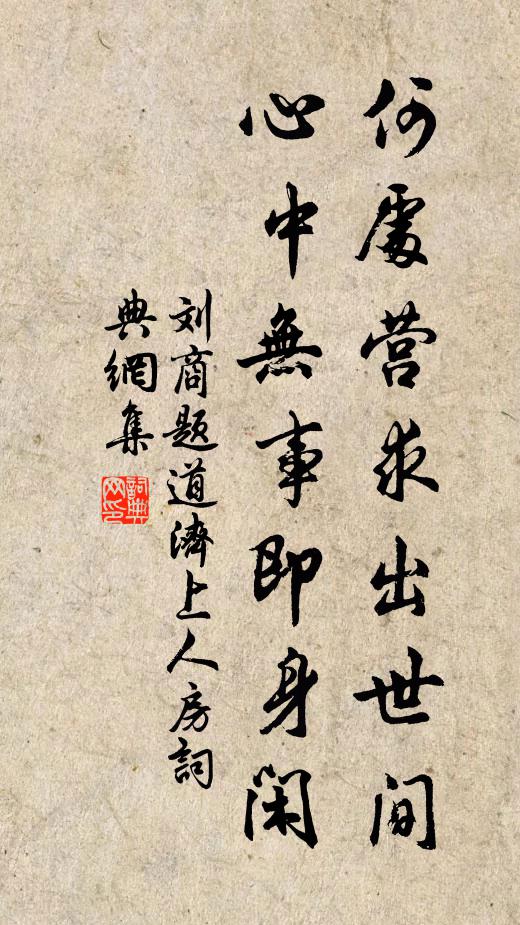 何處营求出世间
心中無事即身闲
刘商题道濟上人房詞
典網集
詞典
网印